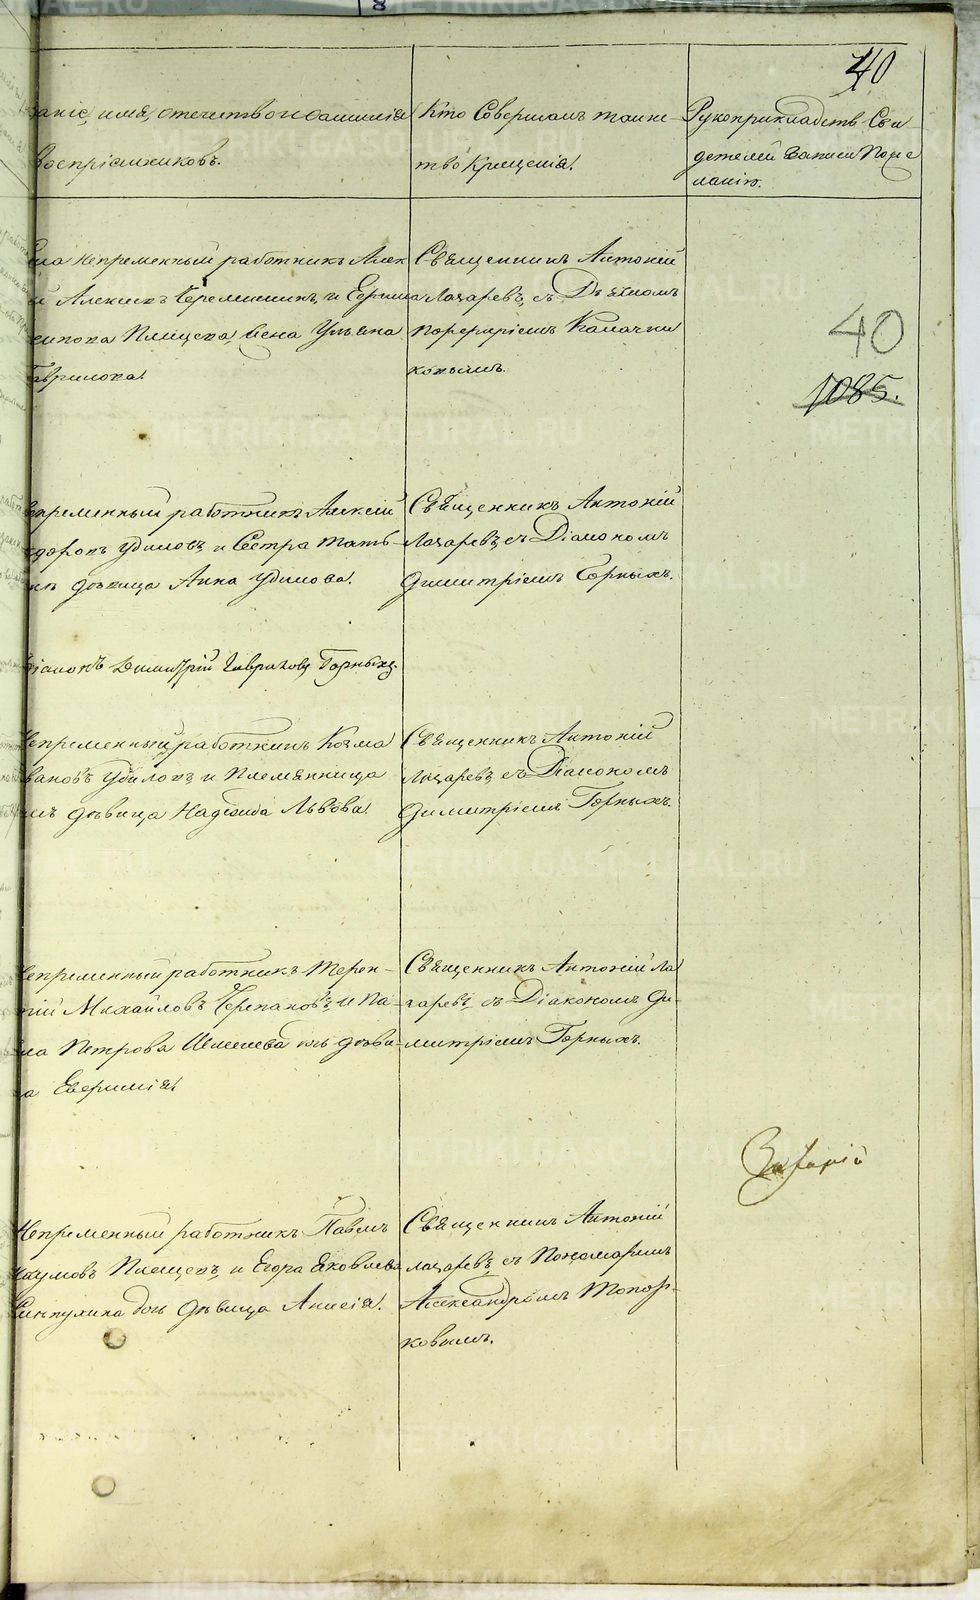 40
званіе, имя, отечество и фамилія
воспріемниковъ.
Кто Совершалъ таинс-
тво Крещенія.
Рукоприкладств Сви
детелей Записи По же
ланію.
непременный работникъ Алек
Алексеевъ и
Плещева жена Ульяна
Гаврилова.
Священникъ Антоній
Лазаревъ, съ Дьячкомъ
Порфиріемъ
ковымъ.
40
1085.
Непременный работникъ Алексей
Федоровъ Удиловъ и Сестра
девица Анна Удилова.
Священникъ Антоній
Лазаревъ, съ Діакономъ
Димитріемъ Горныхъ.
Діаконъ Димитрій Гавриловъ Горныхъ
Непременный работникъ Козма
Ивановъ Удиловъ и Племянница
девица Надежда Львова.
Священникъ Антоній
Лазаревъ съ Діакономъ
Димитріемъ Горныхъ.
Непременный работникъ Терен-
тій Михайловъ Черепановъ, и Па-
Петрова дочь деви-
ца Евфимія.
Священникъ Антоній Ла
заревъ, съ Діакономъ Ди-
митріемъ Горныхъ.
Захарій
Непременный работникъ Павелъ
Наумовъ Плещевъ, и Егора Яковлева
дочь девица Анисія.
Священникъ Антоній
Лазаревъ, съ Пономаремъ
Александромъ Топор-
ковымъ.
METRIKI.GASO-URAL.RU